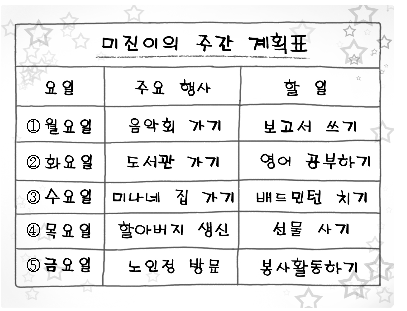 미진이의 주간 계획표
요일 주요 행사 할 일
①월요일 음악회 가기 보고서 쓰기
②화요일 도서관 가기 영어 공부하기
③수요일 미나네 집 가기 배드민턴 치기
④목요일 할아버지 생신 선물 사기
⑤금요일 노인정 방문 봉사활동하기